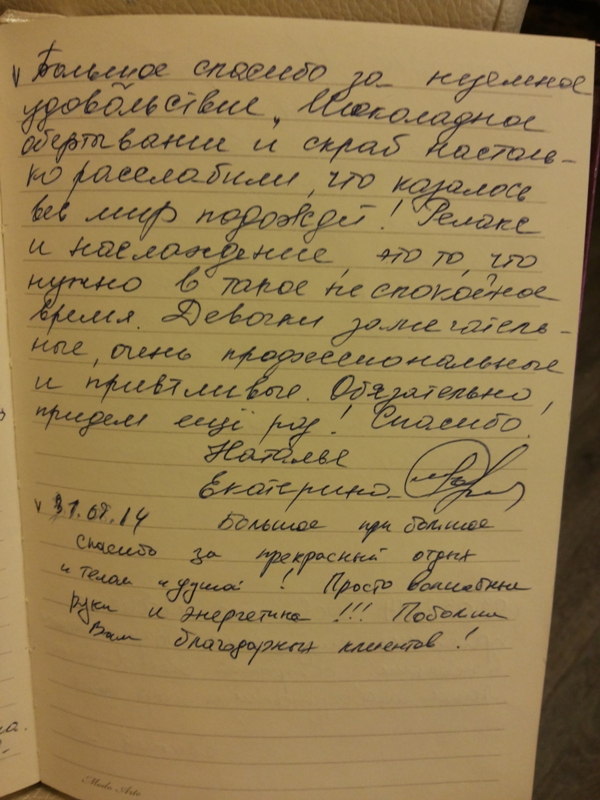 Большое спасибо за неземное
удовольствие. Шоколадное
обертывание и скраб настоль-
ко расслабили, что казалось
весь мир подождет! Релакс
и наслаждение, это то, что
нужно в такое неспокойное
время. Девочки замечатель-
ные, очень профессиональные
и приветливые. Обязательно
придем ещё раз! Спасибо!
Наталья
Екатерина
31.08.14 Большое при большое
спасибо за прекрасный отдых
и телом и душой! Просто волшебные
руки и энергетика!!! Побольше
Вам благодарных клиентов!